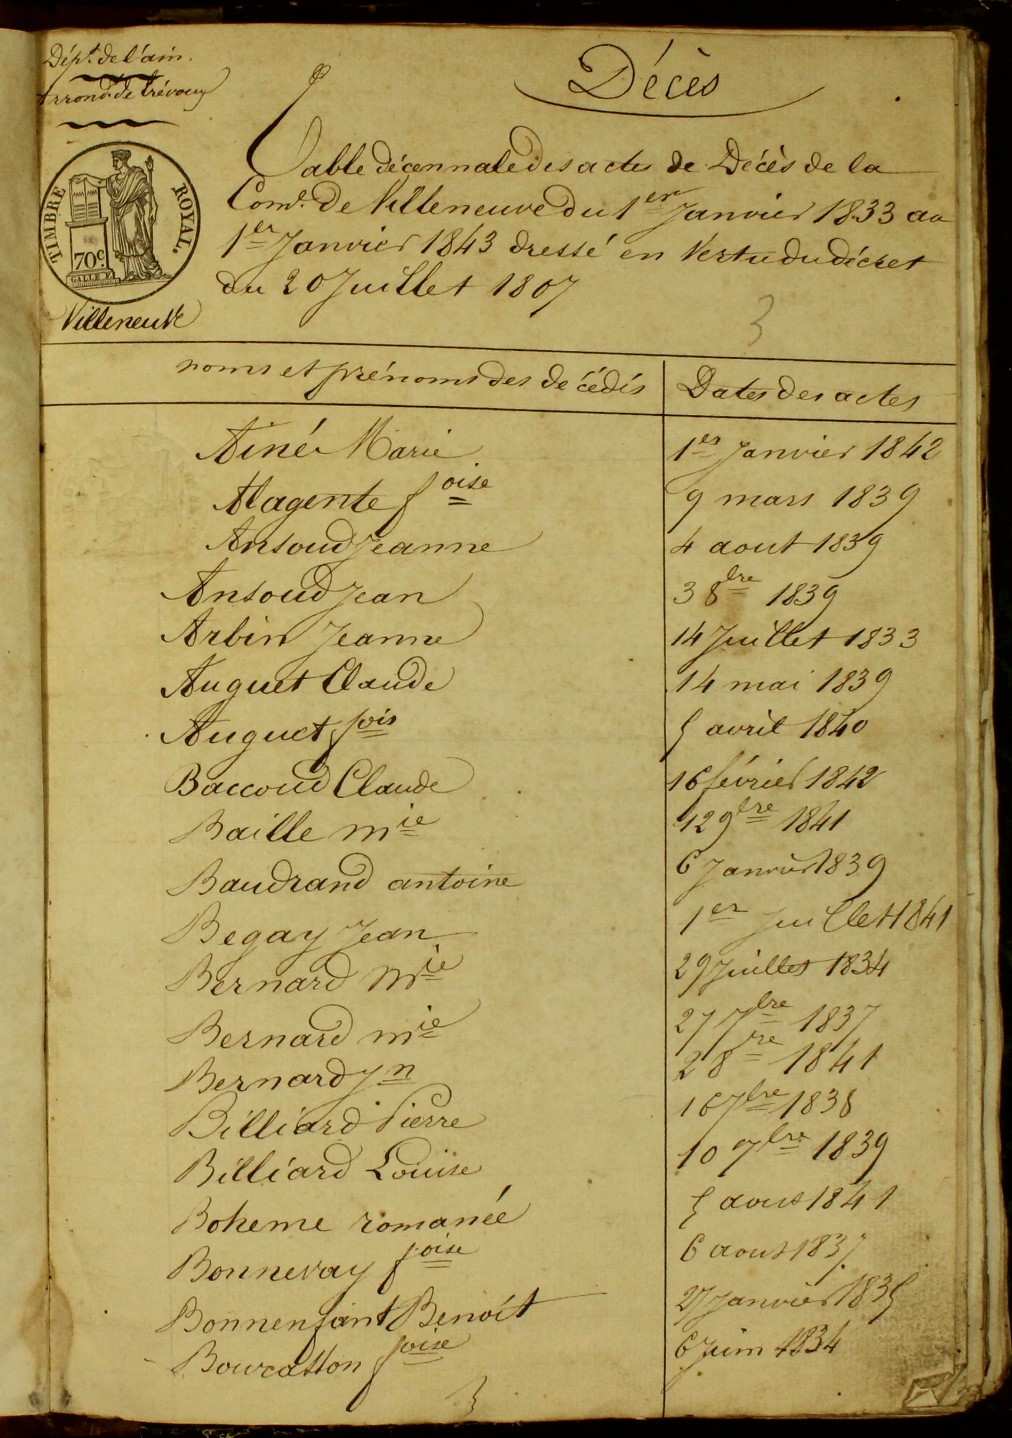 Dépt. de l'ain.
Arrondt. de Trévoux
Décès
TIMBRE ROYAL.
70c.
Villeneuve
Table décennale des actes de Décès de la
Come. De Villeneuve du 1er Janvier 1833 au
1er Janvier 1843 dressé en Vertu du décret
du 20 Juillet 1807
3
noms et prénoms des décédés Dates des actes
Ainé Marie 1er Janvier 1842
Alagente foise 9 mars 1839
Ansoud Jeanne 4 aout 1839
Ansoud Jean 3 8bre 1839
Arbin Jeanne 14 Juillet 1833
Auguet Claude 14 mai 1839
Auguet fois 5 avril 1840
Baccoud Claude 16 février 1842
Baille mie 12 9bre 1841
Baudrand antoine 6 Janvier 1839
Begay Jean 1er Juillet 1841
Bernard Mie 29 Juillet 1834
Bernard mie 27 7bre 1837
Bernard Jn 2 8re 1841
Billiard Pierre 16 7bre 1838
Billiard Louise 10 7bre 1839
Boheme romanée 5 aout 1841
Bonnevay foise 6 aout 1837
Bonnenfant Benoît 27 Janvier 1835
Bourcatton foise 6 Juin 1834
3